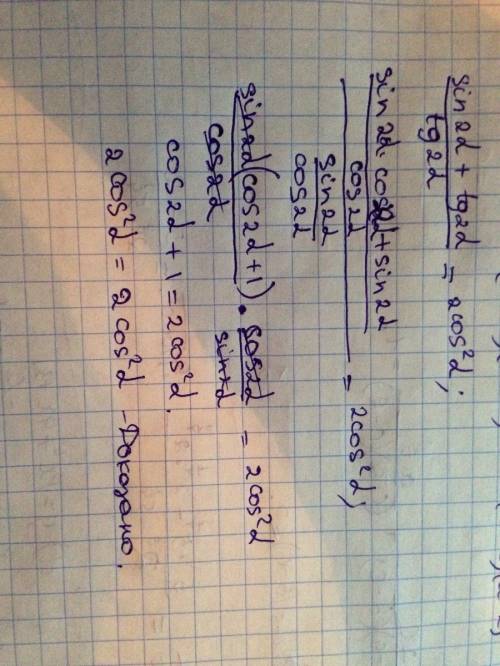 sin2α + tg2α
tg2α
= 2cos²α;
sin2α · cos2α + sin2α
cos2α
sin2α
cos2α
= 2cos²α;
sin2α(cos2α+1)
cos2α
· cos2α
sin2α
= 2cos²α
cos2α + 1 = 2cos²α.
2cos²α = 2cos²α - Доказано.